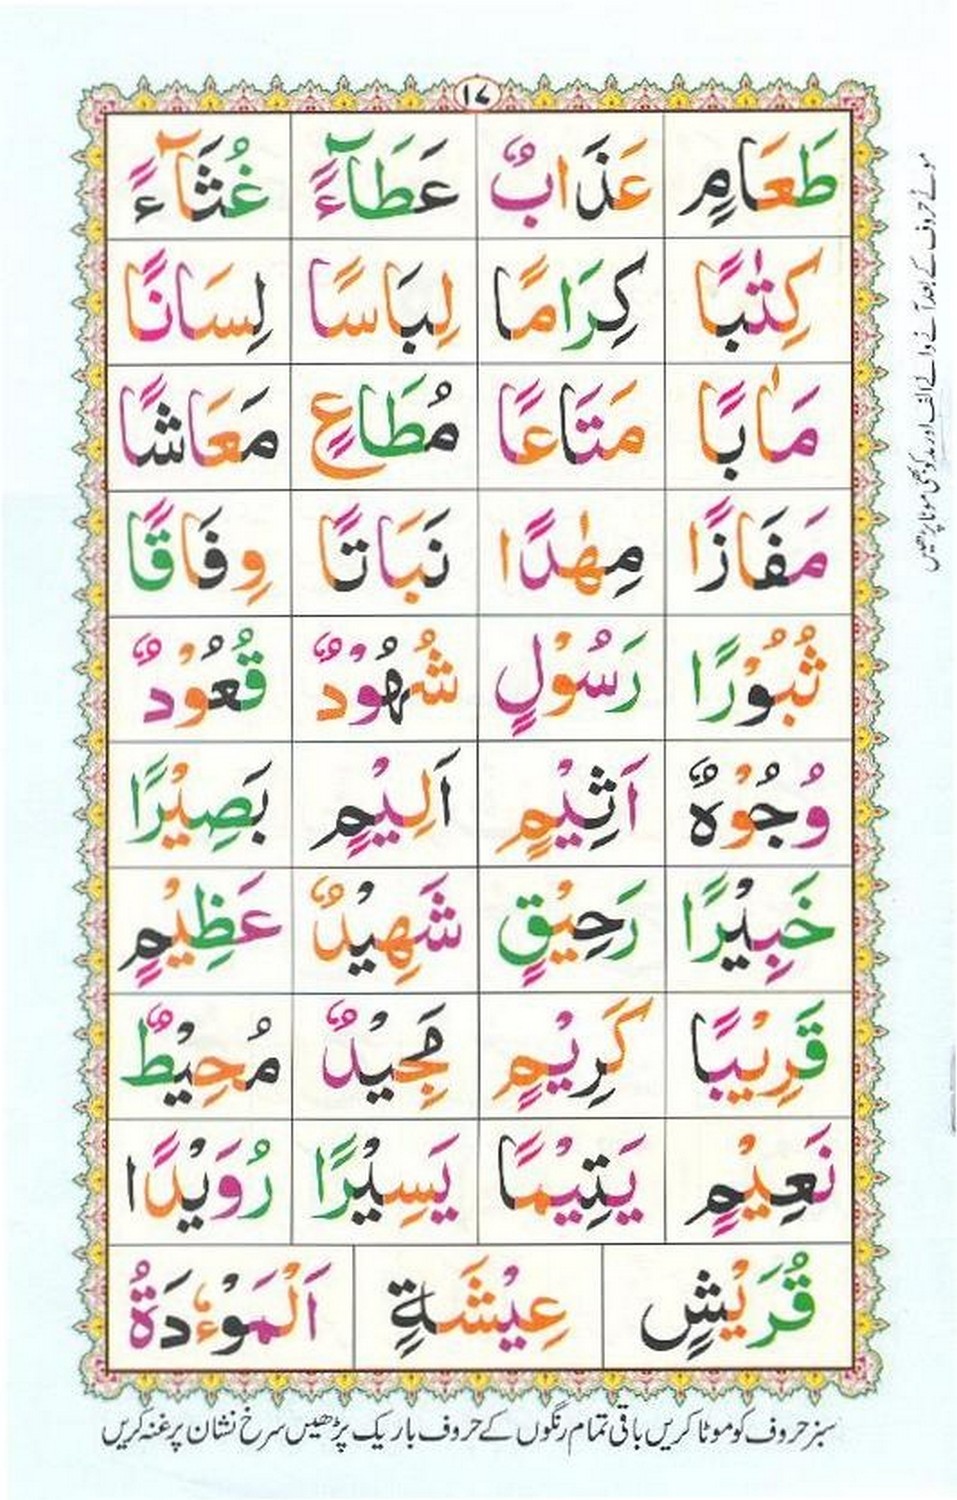 ۱۷
طَعَامٍ عَذَابٌ عَطَآءً غُثَآءً
كِتٰبًا كِرَامًا لِبَاسًا لِسَانًا
مَاٰبًا مَتَاعًا مُطَاعٍ مَعَاشًا
مَفَازًا مِهٰدًا نَبَاتًا وِفَاقًا
ثُبُوْرًا رَسُوْلٍ شُهُوْدٌ قُعُوْدٌ
وُجُوْهٌ اَثِيْمٍ اَلِيْمٍ بَصِيْرًا
خَبِيْرًا رَحِيْقٍ شَهِيْدٌ عَظِيْمٍ
قَرِيْبًا كَرِيْمٍ مَجِيْدٌ مُحِيْطٌ
نَعِيْمٍ يَتِيْمًا يَسِيْرًا رُوَيْدًا
قُرَيْشٍ عِيْشَةٍ اَلْمَوْءٗدَةُ
سبز حروف کو موٹا کریں باقی تمام رنگوں کے حروف باریک پڑھیں سرخ نشان پر غنہ کریں
موٹے حروف کے بعد آنے والے الف اور مد کو بھی موٹا پڑھیں